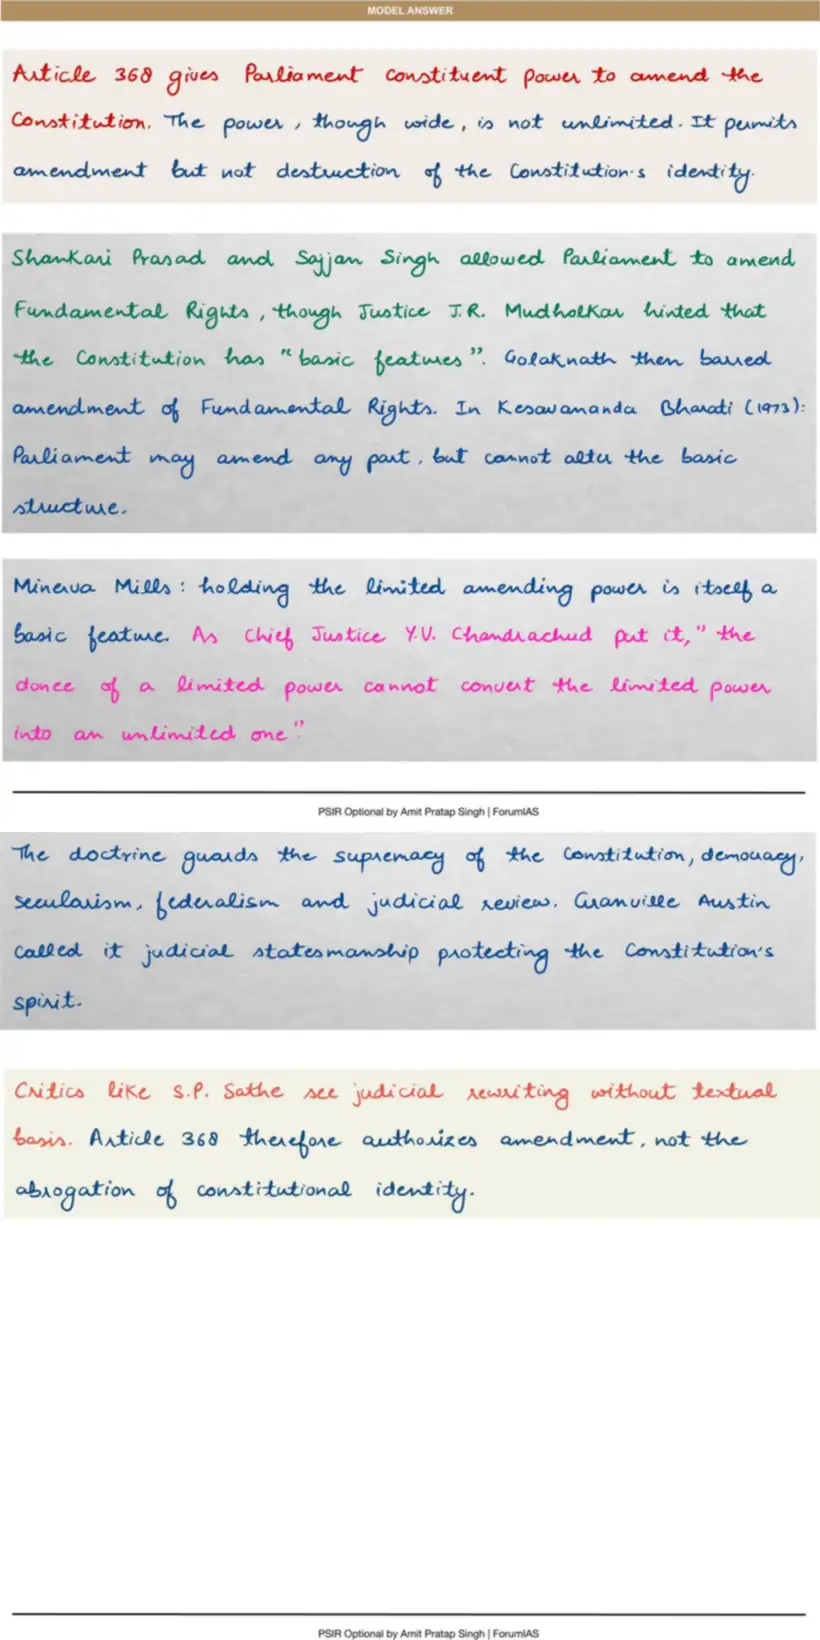 MODEL ANSWER
Article 368 gives Parliament constituent power to amend the
Constitution. The power, though wide, is not unlimited. It permits
amendment but not destruction of the Constitution's identity.
Shankari Prasad and Sajjan Singh allowed Parliament to amend
Fundamental Rights, though Justice J.R. Mudholkar hinted that
the Constitution has "basic features". Golaknath then barred
amendment of Fundamental Rights. In Kesavananda Bharati (1973):
Parliament may amend any part, but cannot alter the basic
structure.
Minerva Mills: holding the limited amending power is itself a
basic feature. As Chief Justice Y.V. Chandrachud put it, "the
donee of a limited power cannot convert the limited power
into an unlimited one"
PSIR Optional by Amit Pratap Singh | ForumIAS
The doctrine guards the supremacy of the Constitution, democracy,
secularism, federalism and judicial review. Granville Austin
called it judicial statesmanship protecting the Constitution's
spirit.
Critics like S.P. Sathe see judicial rewriting without textual
basis. Article 368 therefore authorizes amendment, not the
abrogation of constitutional identity.
PSIR Optional by Amit Pratap Singh | ForumIAS